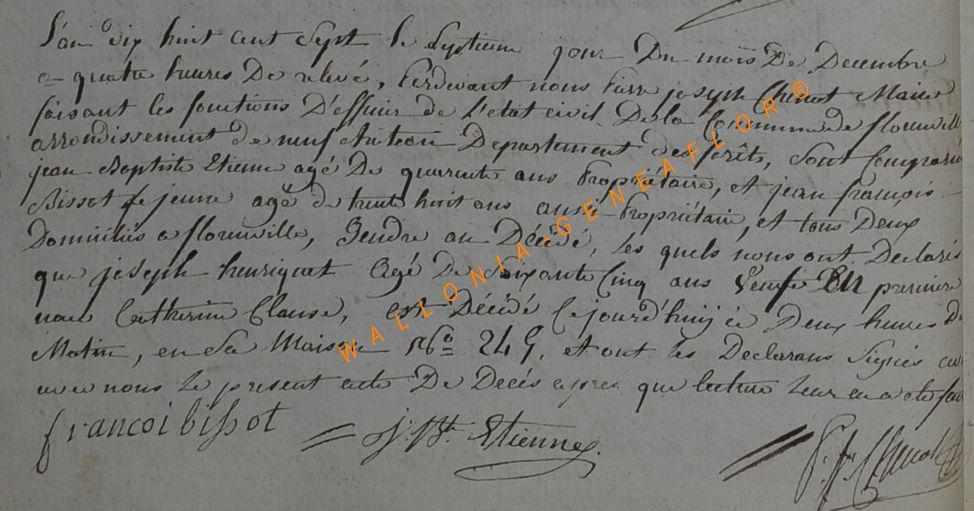 L'an dix huit cent sept le septieme jour Du mois De Decembre
a quatre heures De relevé, Perdevant nous Pierre joseph Chenot Maire
faisant les fonctions D'officier de L'etat civil De la Commune de florenville
arrondissement de neufchateau Departement des forêts, sont Comparu
jean Baptiste Etienne agé De quarente ans Propriétaire, et jean françois
Bissot le jeune agé de trente huit ans aussi Propriétaire, et tous Deux
Domiciliés a florenville, Gendre au Décédé, les quels nous ont Declarés
que joseph henriquet Agé De Soixante Cinq ans Veuf En premiere
noce Catherine Clause, est Décédé Cejourd'huij à Deux heures De
Matin, en Sa Maison No 249, et ont les Declarans Signés
avec nous Le present acte De Decés apres que lecture Leur en a eté fait
françoi bissot J. Bt. Etienne P. J. Chenot
WALLONIA-GENEAFLOR®